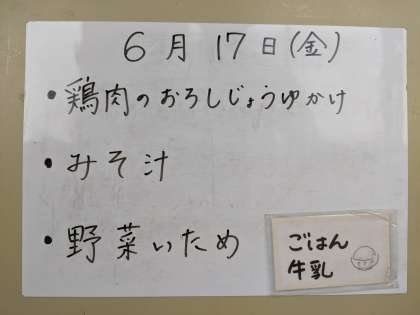 6月17日(金)
・鶏肉のおろしじょうゆかけ
・みそ汁
・野菜いため
ごはん
牛乳